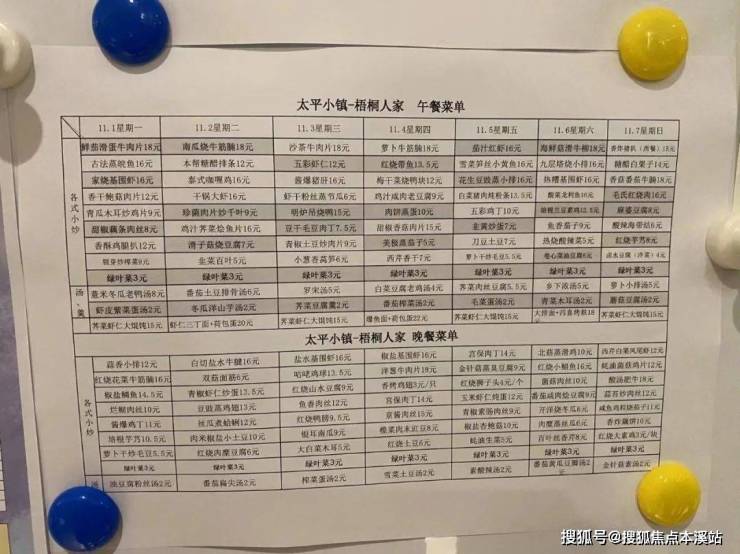 太平小镇-梧桐人家 午餐菜单
11.1星期一 11.2星期二 11.3星期三 11.4星期四 11.5星期五 11.6星期六 11.7星期日
各式小炒
鲜茄滑蛋牛肉片18元 南瓜烧牛筋腩18元 沙茶牛肉片18元 萝卜牛筋腩18元 茄汁红虾16元 海鲜菇滑牛柳18元 香炸猪扒（西餐）15元
古法蒸鲩鱼16元 本帮糖醋排条12元 五彩虾仁12元 红烧带鱼13.5元 雪菜笋丝小黄鱼16元 九层塔烧小排16元 糖醋白果子14元
家烧基围虾16元 泰式咖喱鸡16元 酱爆猪肝16元 梅干菜烧鸭块12元 花生豆豉蒸小排16元 热糟基围虾16元 香菇番茄牛腩18元
香干鲍菇肉片12元 干锅大虾16元 虾干粉丝蒸节瓜6元 鸡汁咸肉老豆腐9元 白菜猪肉炖粉条13.5元 酸菜龙利鱼16元 毛氏红烧肉16元
青瓜木耳炒鸡片9元 珍菌肉片炒千叶9元 明炉吊烧鸭15元 肉饼蒸蛋10元 五彩鸡丁10元 麻婆豆腐8元
甜椒藕条肉丝8元 鸡汁荠菜烩鱼片16元 豆干毛豆肉丁7.5元 甜椒香菇肉片15元 韭黄炒蛋7元 鱼香茄子9元 酸辣海带结6元
香酥鸡腿扒12元 滑子菇烧豆腐7元 青椒土豆炒肉片9元 美极蒸茄子5元 刀豆土豆7元 热烧酸辣菜5元 红烧芋艿8元
韭菜百叶5元 小葱香莴笋6元 西芹香干7元 萝卜干炒毛豆5.5元 卷心菜油豆腐6元
绿叶菜3元 绿叶菜3元 绿叶菜3元 绿叶菜3元 绿叶菜3元 绿叶菜3元 绿叶菜3元
汤、羹
薏米冬瓜老鸭汤8元 番茄土豆排骨汤6元 罗宋汤5元 白菜豆腐老鸡汤4元 荠菜肉丝豆腐羹5元 乡下浓汤5元 萝卜小排汤5元
虾皮紫菜蛋汤2元 冬瓜洋山芋汤2元 荠菜豆腐羹2元 番茄榨菜汤2元 毛菜蛋汤2元 青菜木耳汤2元 蘑菇豆腐汤2元
荠菜虾仁大馄饨15元 虾仁三丁面+荷包蛋20元 荠菜虾仁大馄饨15元 爆鱼面+荷包蛋22元 荠菜虾仁大馄饨15元 荠菜虾仁大馄饨15元
太平小镇-梧桐人家 晚餐菜单
各式小炒
蒜香小排12元 白切盐水牛腱16元 盐水基围虾16元 椒盐基围虾16元 宫保肉丁14元 北菇蒸滑鸡10元 西芹白果凤尾虾12元
红烧花菜牛筋腩16元 双菇面筋6元 咕咾鸡球13.5元 洋葱牛肉片18元 金针菇蒸昊豆腐9元 红烧小鲳鱼16元 蚝油菌菇鸡片12元
椒盐鲷鱼14.5元 青椒虾仁炒蛋13.5元 红烧山水豆腐9元 香烤鸡翅3元/只 红烧狮子头4元/个 番茄咸肉烩豆腐9元 酸汤肥牛18元
烂糊肉丝10元 豆豉蒸鸡翅13元 鱼香肉丝12元 宫保肉丁14元 玉米虾仁炖蛋12元 菌菇肉丝10元 蒜苔炒肉丝12元
酱爆鸡丁11元 丝瓜煮蛤蜊12元 红烧鸭膀9.5元 京酱肉丝15元 青椒素肠肉丝9元 开洋烧冬瓜8元 咸鱼鸡粒烧茄子11元
培根芋艿10.5元 肉末椒盐小土豆10元 银耳南瓜9元 榄菜肉末豇豆8元 椒盐杏鲍菇10元 肉糜蒸丝瓜6元 香炸藕饼16元
萝卜干炒毛豆5.5元 红烧肉糜豆腐6元 大白菜木耳5元 红烧土豆6元 蚝油生菜5元 百叶丝香芹8元 红烧大素鸡3元/块
绿叶菜3元 绿叶菜3元 绿叶菜3元 绿叶菜3元 绿叶菜3元 绿叶菜3元
汤
油豆腐粉丝汤2元 番茄扁尖汤2元 榨菜蛋汤2元 雪菜土豆汤2元 素酸辣汤2元 番茄黄瓜豆瓣汤2元 金针菇素汤2元
搜狐号@搜狐焦点本溪站